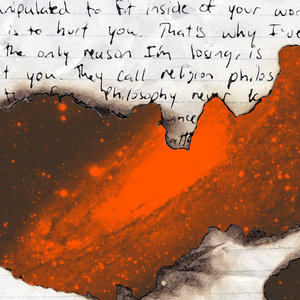 nipulated to fit inside of your wor
is to hurt you. That's why I've
the only reason I'm losing, is
t you. They call religion philos
Philosophy never
since